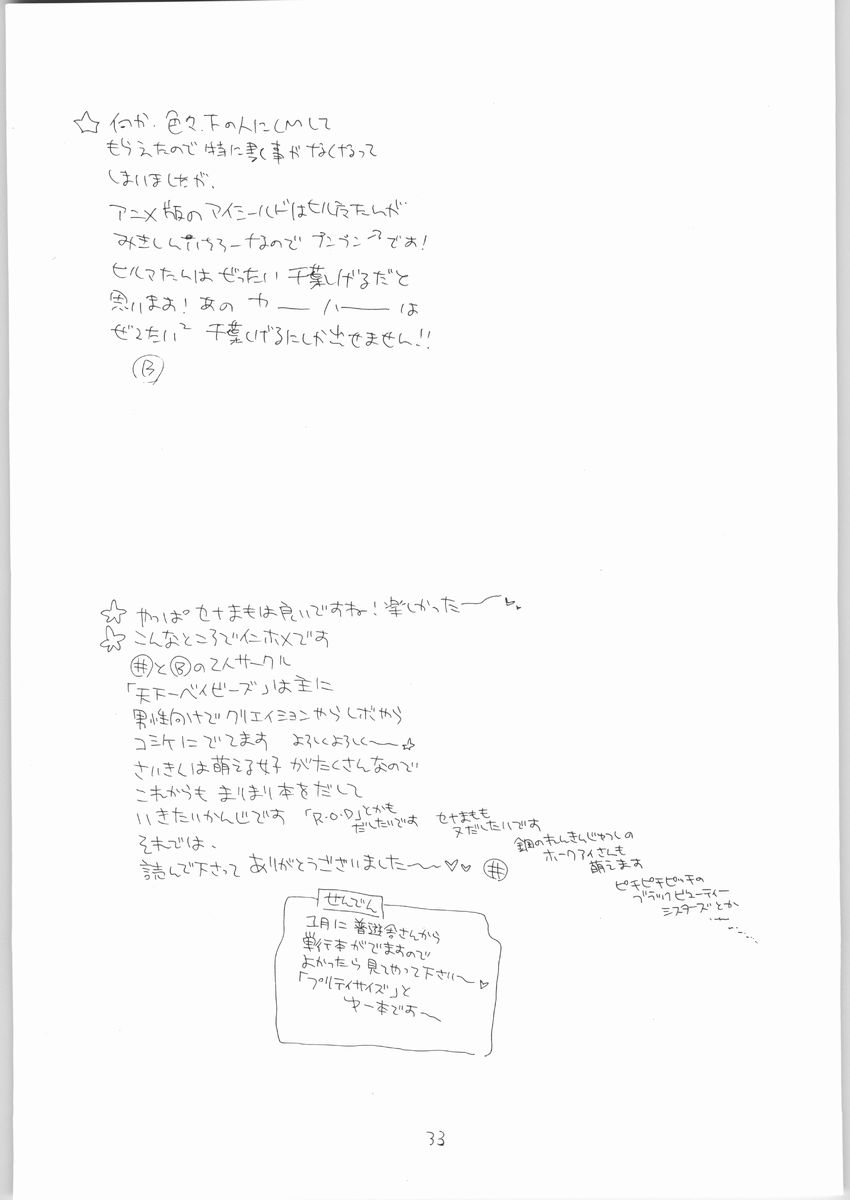 ☆ 何か、色々、下の人にCMして
もらえたので特に書く事がなくなって
しまいましたが、
アニメ版のアイシールドはヒルマたんが
みきしんいちろーなので プンプンです!
ヒルマたんは ぜったい 千葉しげるだと
思います! あの カ ー ハ ー は
ぜったい² 千葉しげるにしか出せません!!
Ⓑ
☆ やっぱ セナまもは良いですね! 楽しかった〜♥
☆ こんなところでインホメです
㊉とⒷの2人サークル
「天下一ベイビーズ」は主に
男性向けで クリエイションやら レボやら
コミケに でてます よろしくよろしく〜☆
さいきんは萌える女子 がたくさんなので
これからも まりまり本をだして
いきたいかんじです 「R.O.D」とかも
だしたいです
セナまもも
又だしたいです
鋼のれんきんじゅつしの
ホークアイさんも
萌えます
ピチピチピッチの
ブラックビューティー
シスターズとか
それでは、
読んで下さって ありがとうございました〜♥♥ #
せんでん
1月に 普遊舎さんから
単行本がでますので
よかったら見てやって下さい〜♥
「プリティサイズ」と
ゆー本です〜
33